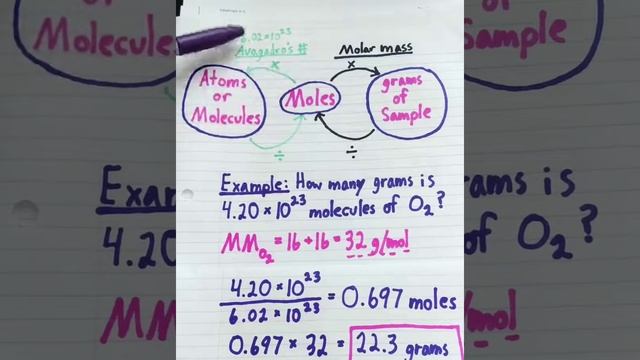 6.02×10²³
Avagadro's #
Molar mass
×
×
Atoms
or
Molecules
Moles
grams
of
Sample
÷
÷
Example: How many grams is
4.20 × 10²³ molecules of O₂?
MM O₂ = 16 + 16 = 32 g/mol
4.20 × 10²³
6.02 × 10²³
= 0.697 moles
0.697 × 32 = 22.3 grams